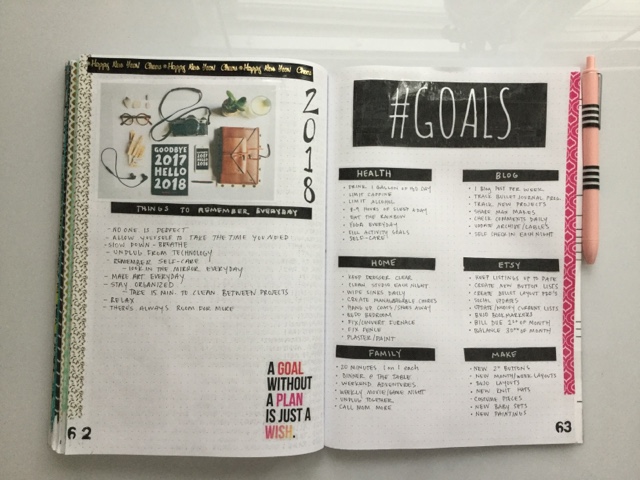 Happy New Year! Cheers Happy New Year! Cheers Happy New Year! Cheers
2018
GOODBYE
2017
HELLO
2018
THINGS TO REMEMBER EVERYDAY
- NO ONE IS PERFECT
- ALLOW YOURSELF TO TAKE THE TIME YOU NEED
- SLOW DOWN - BREATHE
- UNPLUG FROM TECHNOLOGY
- REMEMBER SELF-CARE!
- LOOK IN THE MIRROR EVERYDAY
- MAKE ART EVERYDAY
- STAY ORGANIZED
- TAKE 15 MIN. TO CLEAN BETWEEN PROJECTS
- RELAX
- THERE'S ALWAYS ROOM FOR MORE
A GOAL
WITHOUT
A PLAN
IS JUST A
WISH.
62
#GOALS
HEALTH
• DRINK 1 GALLON OF H2O DAY
• LIMIT CAFFEINE
• LIMIT ALCOHOL
• 8-9 HOURS OF SLEEP A DAY
• EAT THE RAINBOW
• YOGA EVERYDAY
• FULL ACTIVITY GOALS
• SELF-CARE
BLOG
• 1 BLOG POST PER WEEK
• TRACK BULLET JOURNAL PROG.
• TRACK NEW PROJECTS
• SHARE MAX MAKES
• CHECK COMMENTS DAILY
• UPDATE ARCHIVE/LABELS
• SELF CHECK IN EACH NIGHT
HOME
• KEEP DRESSER CLEAR
• CLEAN STUDIO EACH NIGHT
• WIPE SINKS DAILY
• CREATE MANAGEABLE CHORES
• HANG UP COATS/SHOES AWAY
• REDO BEDROOM
• FIX/CONVERT FURNACE
• FIX FENCE
• PLASTER/PAINT
ETSY
• KEEP LISTINGS UP TO DATE
• CREATE NEW BUTTON LISTS
• CREATE BULLET LAYOUT PDF'S
• SOCIAL UPDATES
• UPDATE/MODIFY CURRENT LISTS
• BOOKMARKERS
• BILL DUE 2nd OF MONTH
• BALANCE 30th OF MONTH
FAMILY
• 20 MINUTES 1 on 1 each
• DINNER @ THE TABLE
• WEEKEND ADVENTURES
• WEEKLY MOVIE/GAME NIGHT
• UNPLUG TOGETHER
• CALL MOM MORE
MAKE
• NEW 2" BUTTONS
• NEW MONTH/WEEK LAYOUTS
• BUJO LAYOUTS
• NEW KNIT HATS
• COSTUME PIECES
• NEW BABY SETS
• NEW PAINTINGS
63